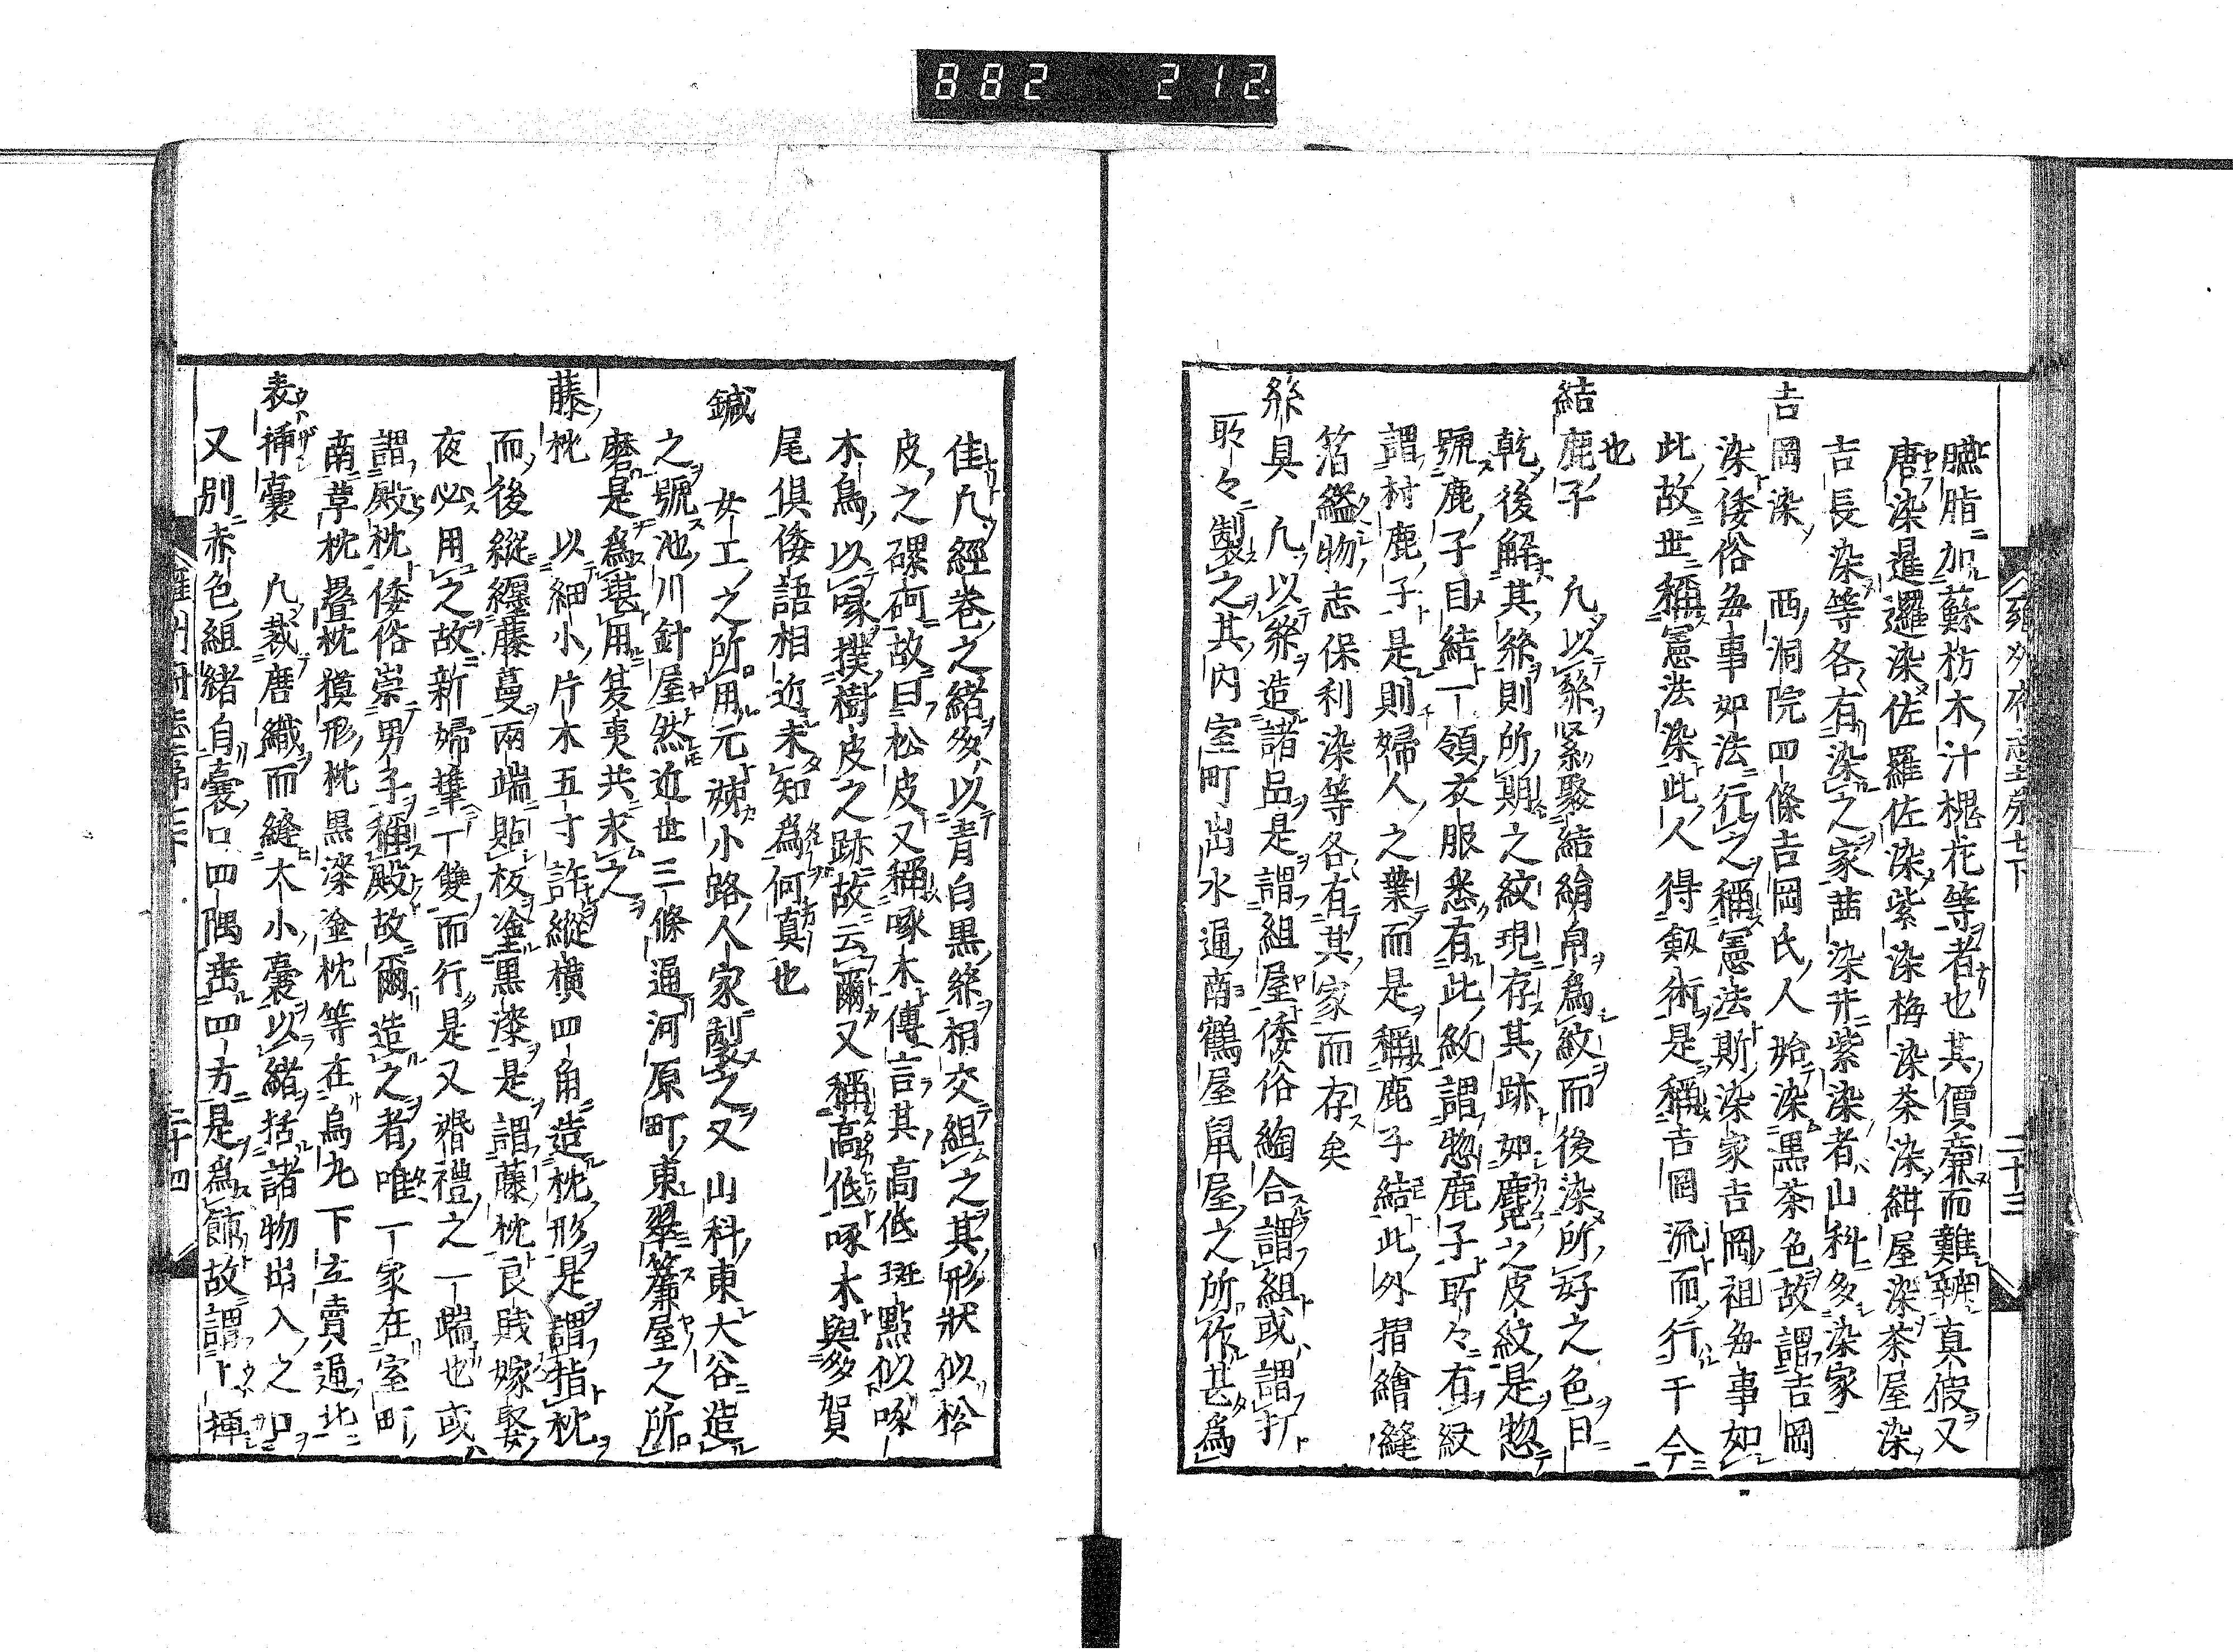 882 212.
雍州府志 第七下 二十三
臙脂加蘇枋木汁槐花等者也其價廉而難辨真假又
唐染暹邏染佐羅佐染紫染梅染茶染紺屋染茶屋染
吉長染等各有染之家茜染并紫染者山科多染家
吉岡染 西洞院四條吉岡氏人始染黒茶色故謂吉岡
染倭俗毎事如法行之稱憲法斯染家吉岡祖毎事如
此故世稱憲法染此人得劔術是稱吉岡流而行于今
也
結鹿子 凢以絲緊聚結絹帛爲紋而後染所好之色日
乾後解其絲則所期之紋現存其跡如麑之皮紋是惣
號鹿子目結一領衣服悉有此紋謂惣鹿子所々有紋
謂村鹿子是則婦人之業而是稱鹿子結此外摺繪縫
箔纐物志保利染等各有其家而存矣
絲具 凢以絲造諸品是謂組屋倭俗綯合謂組或謂打
所々製之其内室町出水通南鶴屋鼠屋之所作甚爲
佳凢經巻之緒多以青白黒絲相交組之其形狀似松
皮之磥砢故曰松皮又稱啄木傳言其高低斑點似啄
木鳥以喙撲樹皮之跡故云爾又稱高低啄木與多賀
尾倶倭語相近未知爲何真也
鍼 女工之所用元姊小路人家製之又山科東大谷造
之號池川針屋然近世三條通河原町東翠簾屋之所
磨是爲堪用華夷共求之
藤枕 以細小片木五寸許縱横四角造枕形是謂指枕
而後縱纒藤蔓兩端貼板塗黒漆是謂藤枕良賤嫁娶
夜必用之故新婦㩦一雙而行是又婚禮之一端也或
謂殿枕倭俗崇男子稱殿故爾造之者唯一家在室町
南草枕疊枕獏形枕黒漆塗枕等在烏丸下立賣通北
表揷嚢 凢裁唐織而縫大小嚢以緒括諸物出入之口
又別赤色組緒自嚢口四隅垂四方是爲飾故謂上揷
雍州府志 第七下 二十四